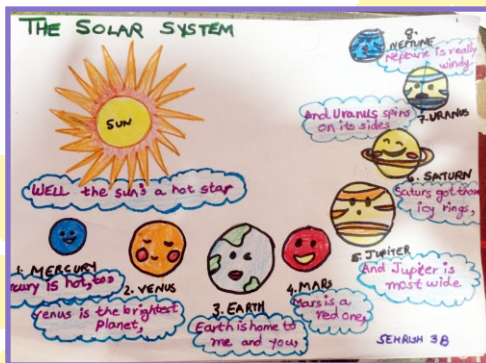 THE SOLAR SYSTEM
SUN
WELL the sun's a hot star
1. MERCURY
cury is hot, too
2. VENUS
Venus is the brightest
planet,
3. EARTH
Earth is home to
me and you,
4. MARS
Mars is a
red one,
5. JUPITER
And Jupiter is
most wide
6. SATURN
Saturs got those
icy rings,
7. URANUS
And Uranus spins
on its sides
8.
NEPTUNE
Neptune is really
windy
SEHRISH 3B